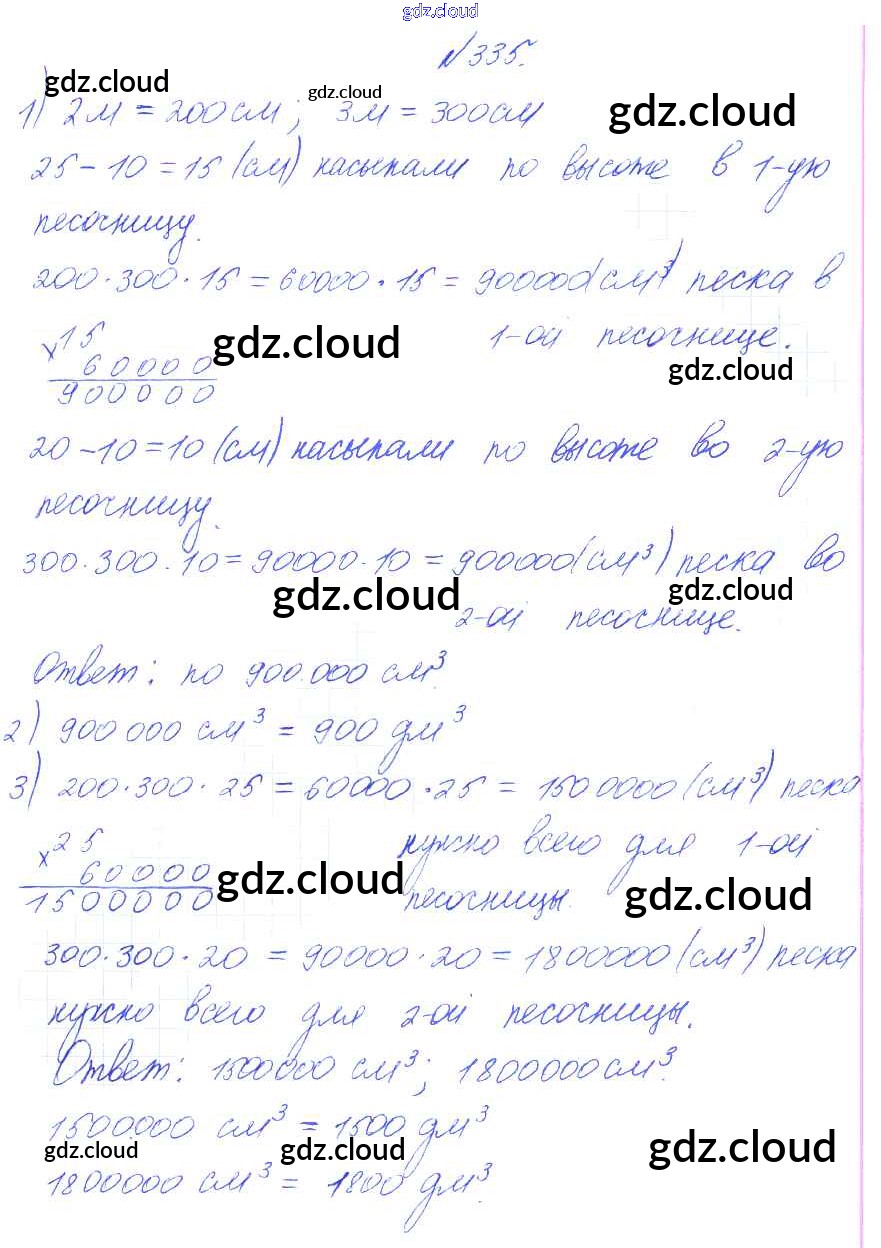 gdz.cloud
№335.
gdz.cloud gdz.cloud gdz.cloud
1) 2м = 200см; 3м = 300см
25 - 10 = 15 (см) насыпали по высоте в 1-ую
песочницу.
200·300·15 = 60000·15 = 900000(см³) песка в
1-ой песочнице.
×15
60000
900000
gdz.cloud gdz.cloud
20 - 10 = 10 (см) насыпали по высоте во 2-ую
песочницу.
300·300·10 = 90000·10 = 900000(см³) песка во
gdz.cloud gdz.cloud
2-ой песоснице.
Ответ: по 900.000 см³.
2) 900 000 см³ = 900 дм³
3) 200·300·25 = 60000·25 = 1500000(см³) песка
нужно всего для 1-ой
песосницы.
×25
60000
1500000
gdz.cloud gdz.cloud
300·300·20 = 90000·20 = 1800000(см³) песка
нужно всего для 2-ой песосницы.
Ответ: 1500000 см³; 1800000см³.
1500000 см³ = 1500 дм³
gdz.cloud gdz.cloud gdz.cloud
1800000 см³ = 1800 дм³.